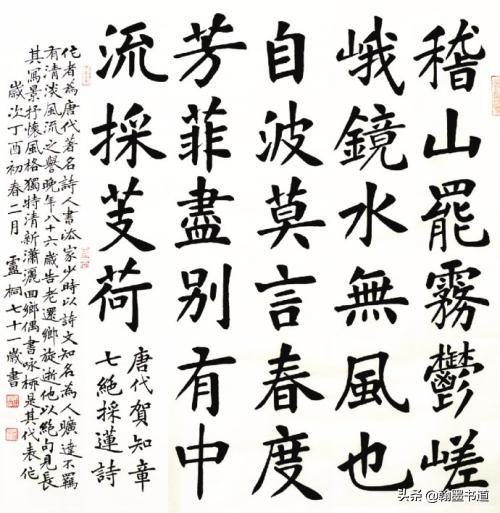 稽山罷霧鬱嵯
峨鏡水無風也
自波莫言春度
芳菲盡别有中
流採芰荷
唐代賀知章
七絶採蓮詩
作者為唐代著名詩人書法家少時以詩文知名為人曠達不羈
有清淡風流之譽晚年八十六歲告老還鄉旋逝他以絶句見長
其寫景抒懷風格獨特清新瀟灑回鄉偶書咏柳是其代表作
歲次丁酉初春二月 盧桐七十一歲書
头条 @翰墨书道